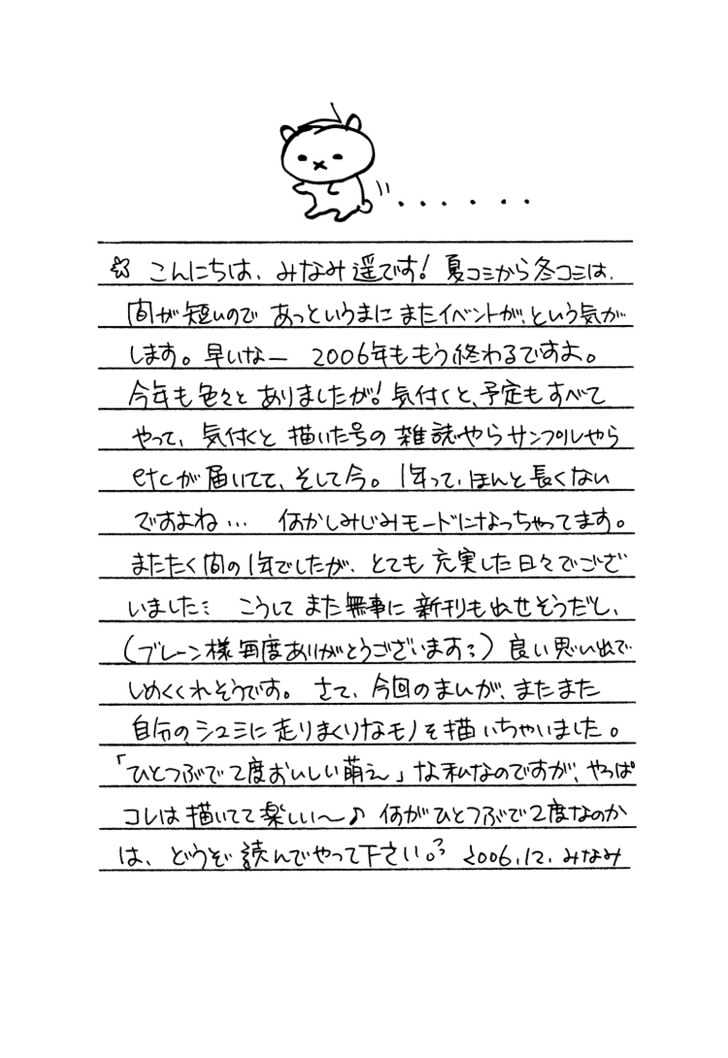 ☆ こんにちは、みなみ遥です! 夏コミから冬コミは、
間が短いので あっというまに またイベントが、という気が
します。早いなー 2006年ももう終わるですよ。
今年も色々と ありましたが! 気付くと、予定も すべて
やって、気付くと 描いた号の 雑誌やら サンプルやら
etcが 届いてて、そして今。1年って、ほんと長くない
ですよね… 何かしみじみモードになっちゃってます。
またたく間の1年でしたが、とても 充実した日々でござ
いました。 こうして また無事に 新刊も出せそうだと、
(ブレーン様 再度ありがとうございます) 良い思い出で
しめくくれそうです。 さて、今回のまんが、またまた
自分の、シュミに 走りまくりなモノを描いちゃいました。
「ひとつぶで2度おいしい萌え」な私なのですが、やっぱ
コレは 描いてて楽しい〜♪ 何がひとつぶで2度なのか
は、どうぞ 読んでやって下さい。 2006.12. みなみ